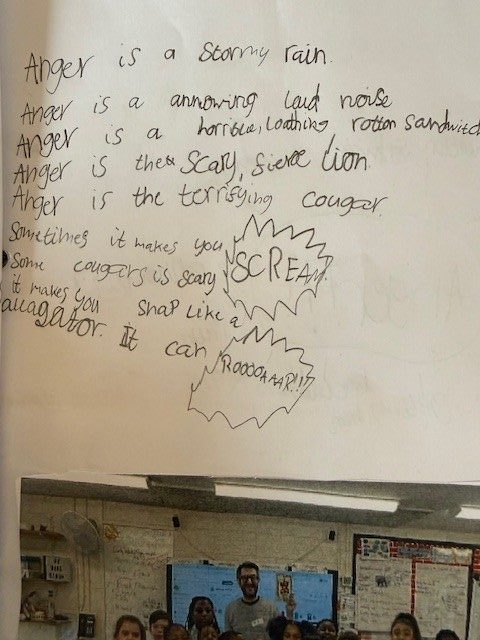 Anger is a stormy rain.
Anger is a annowing laud noise
Anger is a horrible, loathing rotton sandwitch
Anger is the scary, fierce lion
Anger is the terrifying cougar.
Sometimes it makes you SCREAM.
Some cougars is scary
it makes you snap like a
alagator. It can ROOOOAAAR!!!